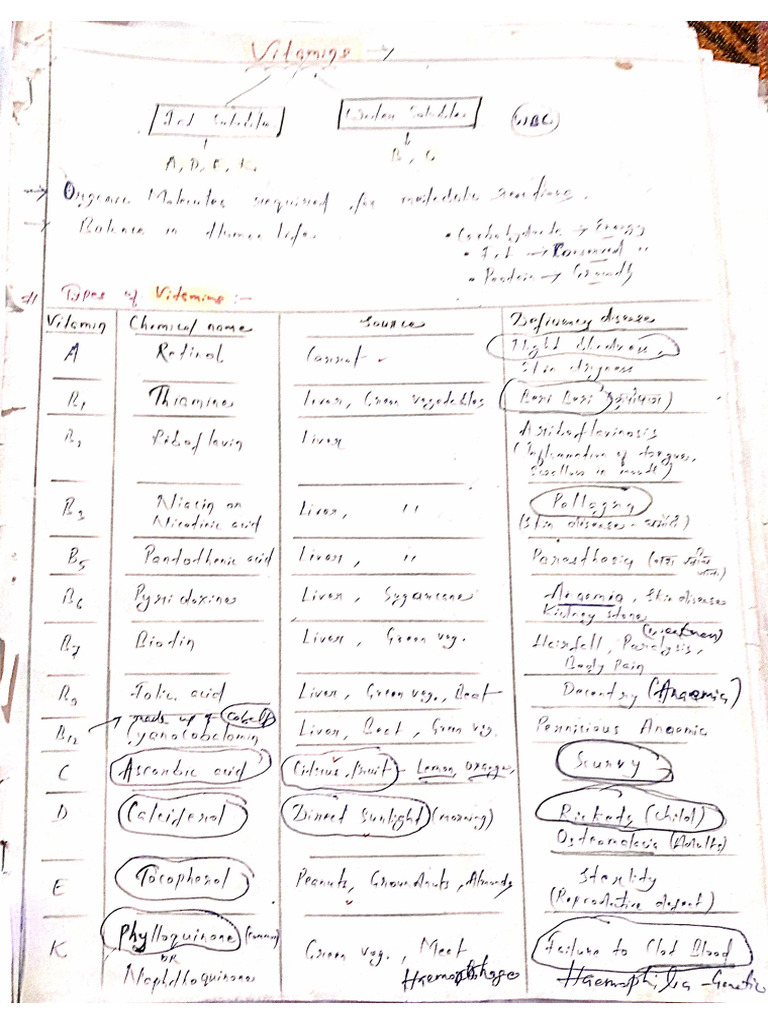 Vitamins →
Fat Soluble
Water Soluble
WBC
A, D, E, K
B, C
→ Organic Molecules required for metabolic reactions.
→ Balance in Human life.
• Carbohydrate → Energy
• Fat → Reserved "
• Protein → Growth
# Types of Vitamins :-
Vitamin Chemical name Source Deficiency disease
A Retinol Carrot Night blindness,
Skin dryness
B1 Thiamine Liver, Green vegetables Beri Beri
B2 Riboflavin Liver Ariboflavinosis
(Inflammation of tongue,
in mouth)
B3 Niacin or Liver, " Pellagra
Nicotinic acid (Skin disease -
B5 Pantothenic acid Liver, " Parasthesia
B6 Pyridoxine Liver, Sugarcane Anaemia, Skin disease
Kidney stone
B7 Biotin Liver, Green veg. Hairfall, Paralysis,
Body Pain
B9 Folic acid Liver, Green veg., Beet (Anaemia)
made up of Cobalt
B12 Cyanocobalamin Liver, Beet, Green veg. Pernicious Anaemia
C Ascorbic acid Citrus Fruit - Lemon, Orange, Scurvy
D Calciferol Direct Sunlight (morning) Rickets (Child)
Osteomalacia (Adults)
E Tocopherol Peanuts, Groundnuts, Almonds Sterility
(Reproductive defect)
K Phylloquinone Green veg., Meet Failure to Clot Blood
OR
Naphthoquinone Haemophilia - Genetic